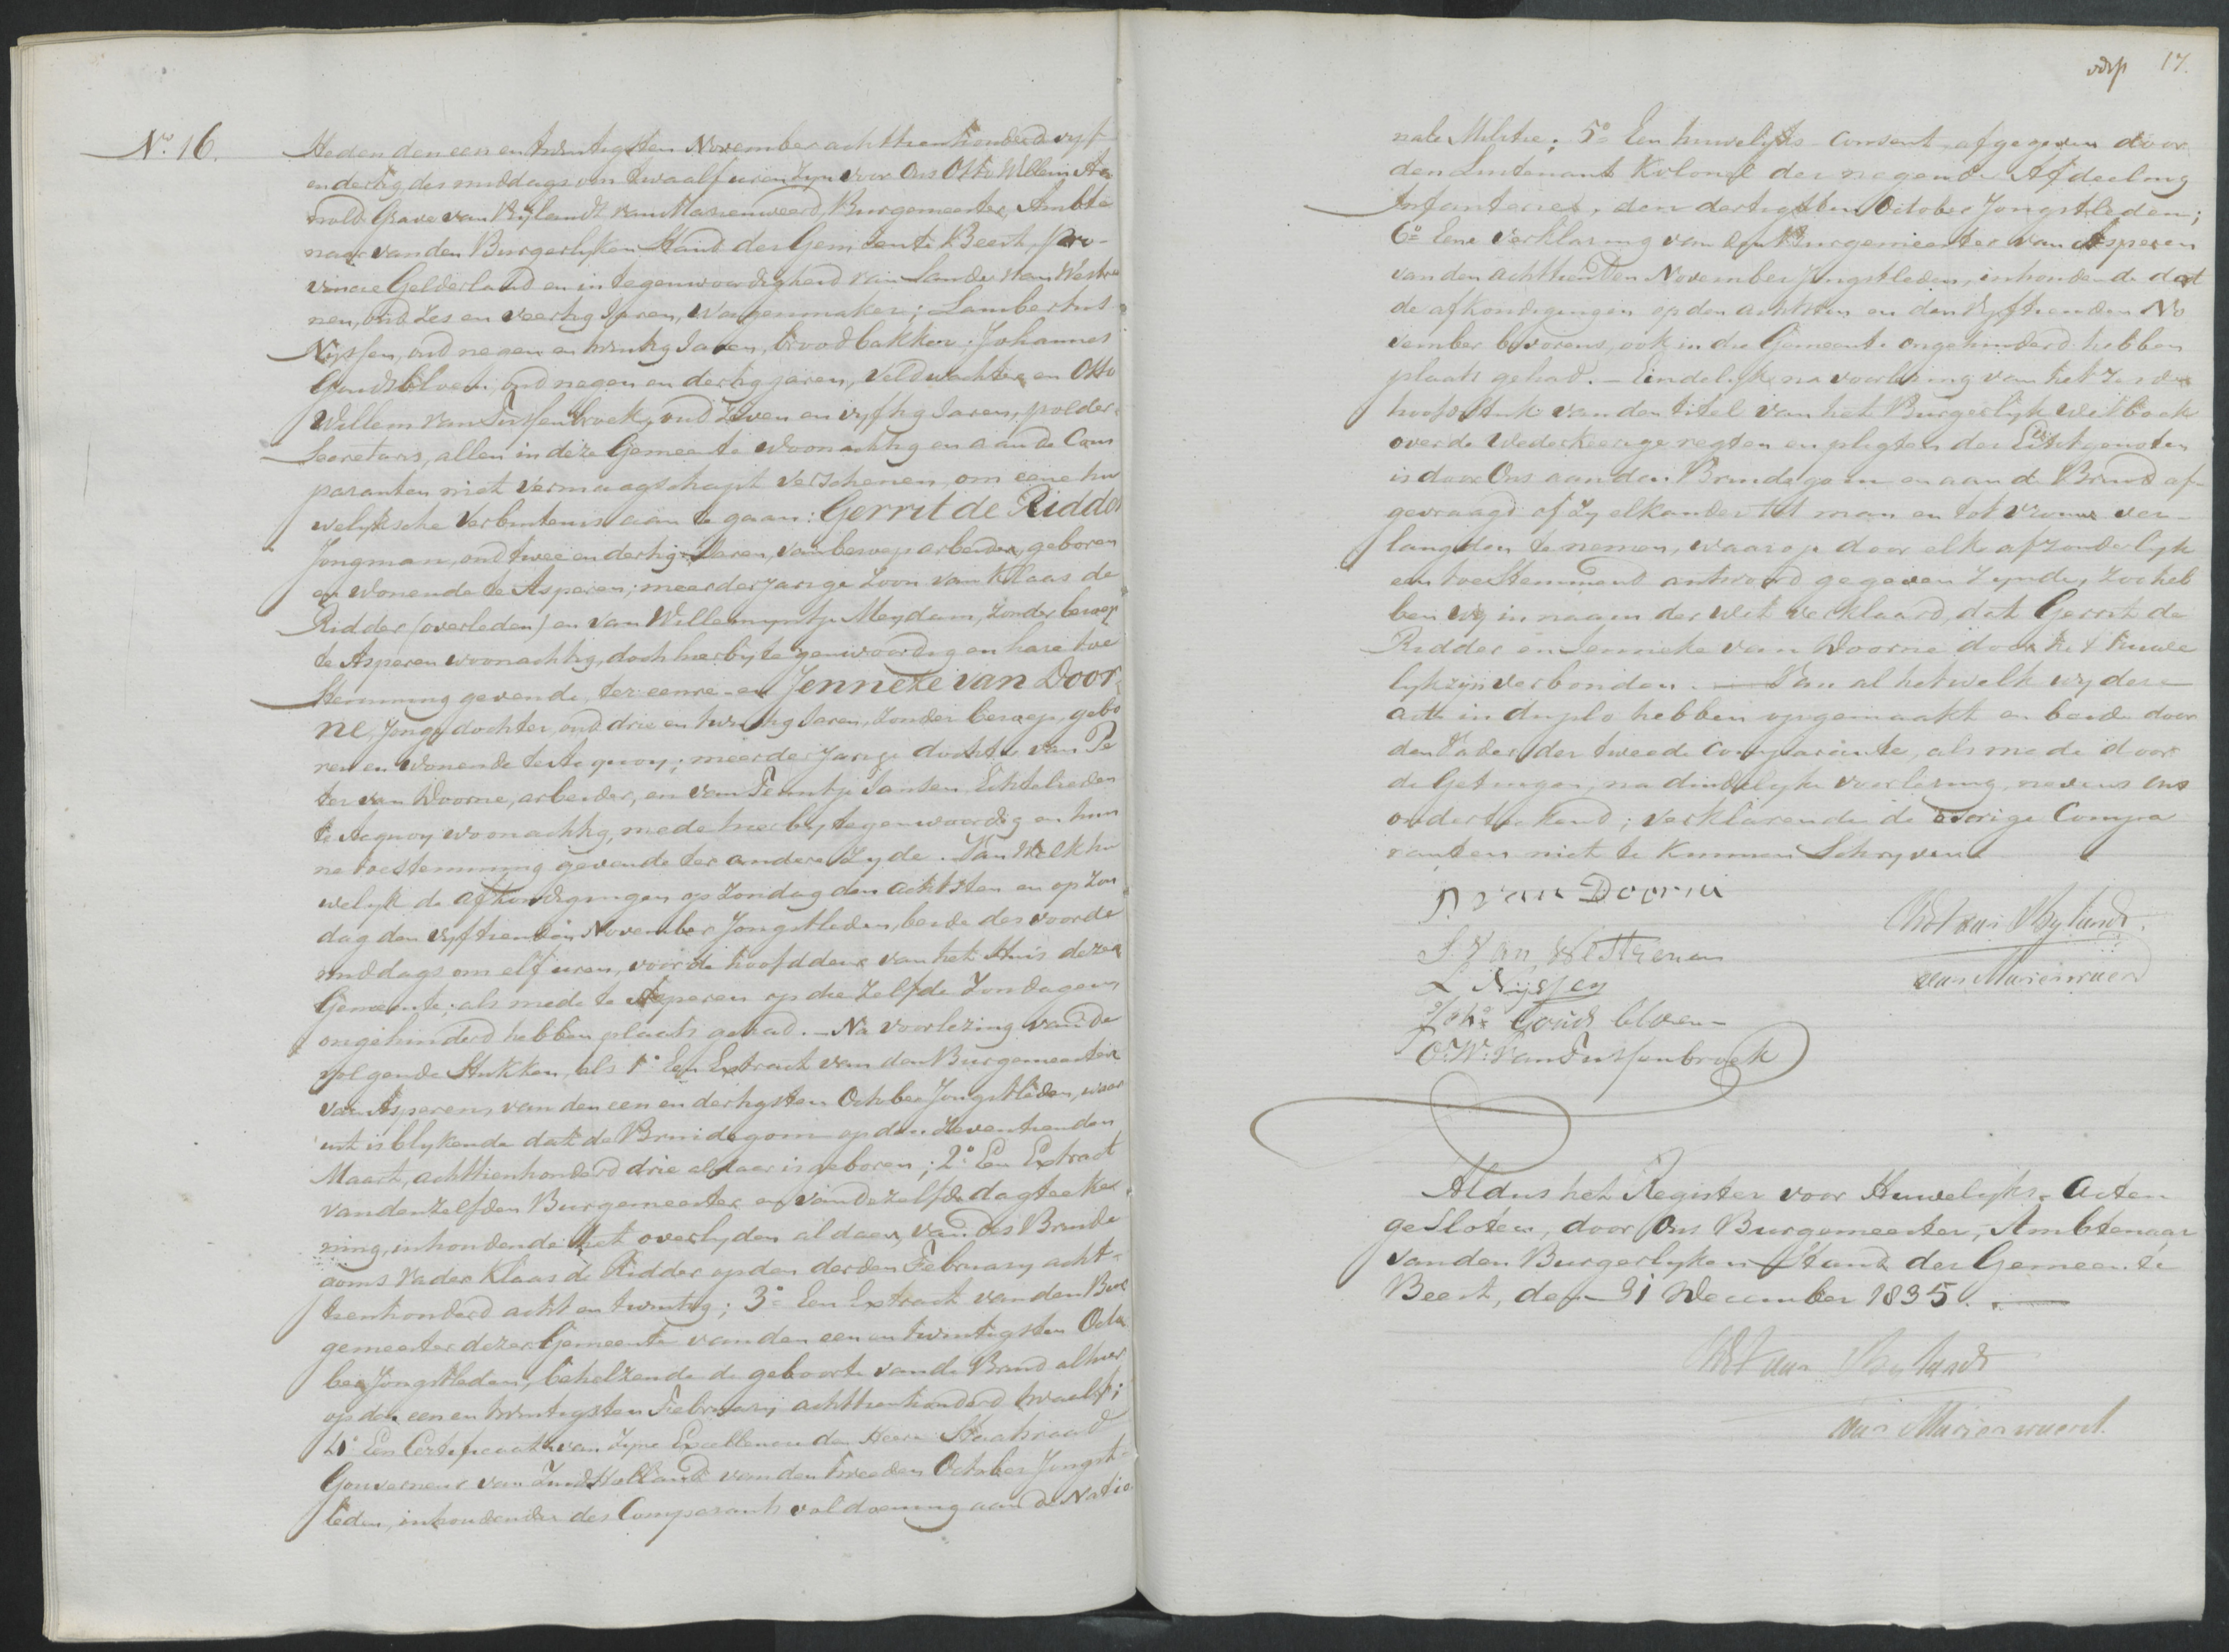 No. 16.
Heden den een en twintigsten November achttienhonderd vyf
en dertig des middags om twaalf uren zyn voor Ons Otto Willem Ar
nold Grave van Bylandt van Marienweerd, Burgemeester, Ambte
naar van den Burgerlyken Stand der Gemeente Beest, Pro-
vincie Gelderland en in tegenwoordigheid van Sander van Westre
nen, oud zes en veertig Jaren, Wagenmaker; Lambertus
Nyssen, oud negen en twintig Jaren, broodbakker; Johannes
Goudsbloem, oud negen en dertig jaren, Veldwachter en Otto
Willem van Tussenbroek, oud zeven en vyftig Jaren, polder-
Secretaris, allen in deze Gemeente woonachtig en aan de Com
paranten niet vermaagschapt verschenen, om eene hu
welyksche Verbintenis aan te gaan: Gerrit de Ridder
Jongman, oud twee en dertig Jaren, van beroep arbeider, geboren
en wonende te Asperen; meerderjarige Zoon van Klaas de
Ridder (overleden) en van Willemyntje Meydam, zonder beroep
te Asperen woonachtig, doch hierby tegenwoordig en hare toe
stemming gevende, ter eenre - en Jenneke van Door
ne, Jonge dochter, oud drie en twintig Jaren, zonder beroep, gebo
ren en wonende te Acquoy; meerderjarige dochter van Pe
ter van Doorne, arbeider, en van Teuntje Jansen, Echtelieden
te Acquoy woonachtig, mede hierby tegenwoordig en hun
ne toestemming gevende ter andere Zyde. Van Welk hu
welyk de afkondigingen op Zondag den achtsten en op Zon
dag den vyftienden November Jongstleden, beide des voorde
middags om elf uren, voor de hoofddeur van het Huis dezer
Gemeente; als mede te Asperen op die zelfde Zondagen
ongehinderd hebben plaats gehad. - Na voorlezing van de
volgende Stukken, als 1o Een Extract van den Burgemeester
van Asperen, van den een en dertigsten October Jongstleden, waar
uit is blykende dat de Bruidegom op den Zeventienden
Maart, achttienhonderd drie aldaar is geboren; 2o Een Extract
van denzelfden Burgemeester en van dezelfde dagteeke
ning, inhoudende het overlyden aldaar, van des Bruide
goms Vader Klaas de Ridder op den derden February acht-
tienhonderd acht en twintig; 3o Een Extract van den Bur
gemeester dezer Gemeente van den een en twintigsten Octo
ber Jongstleden, behelzende de geboorte van de Bruid alhier
op den een en twintigsten February achttienhonderd twaalf;
4o Een Certificaat van Zyne Excellencie den Heere Staatsraad
Gouverneur van Zuid Holland van den tweeden October Jongst-
leden, inhoudende des Comparants voldoening aan de Natio
17.
nale Militie; 5o Een huwelyks-Consent, afgegeven door
den Luitenant Kolonel der negende Afdeeling
Infanterie, den dertigsten October Jongstleden;
6o Eene verklaring van den Burgemeester van Asperen
van den achttienden November Jongstleden, inhoudende dat
de afkondigingen op den achtsten en den Vyftienden No
vember bevorens, ook in die Gemeente ongehinderd hebben
plaats gehad. - Eindelyk na voorlezing van het zesde
hoofdstuk van den titel van het Burgerlyk Wetboek
over de Wederkeerige regten en pligten der Echtgenoten
is door Ons aan den Bruidegom en aan de Bruid af-
gevraagd of zy elkander tot man en tot vrouw ver-
langden te nemen, waarop door elk afzonderlyk
een toestemmend antwoord gegeven zynde, zoo heb
ben wy in naam der Wet verklaard, dat Gerrit de
Ridder en Jenneke van Doorne door het huwe
lyk zyn verbonden. — Van al hetwelk wy deze
acte in duplo hebben opgemaakt en beide door
den Vader der tweede Comparante, als mede door
de Getuigen, na duidelyke voorlezing, nevens Ons
onderteekend; verklarende de overige Compa
ranten niet te kunnen Schryven.
P. van Doorne
S. Van Westrenen
L Nijssen
Johs Goudsbloem
O: W: van Tussenbroek
van Bylandt
van Marienweerd
Aldus het Register voor Huwelyks-Acten
gesloten, door Ons Burgemeester, Ambtenaar
van den Burgerlyken Stand der Gemeente
Beest, den 31 December 1835. —
van Bylandt
van Marienweerd.